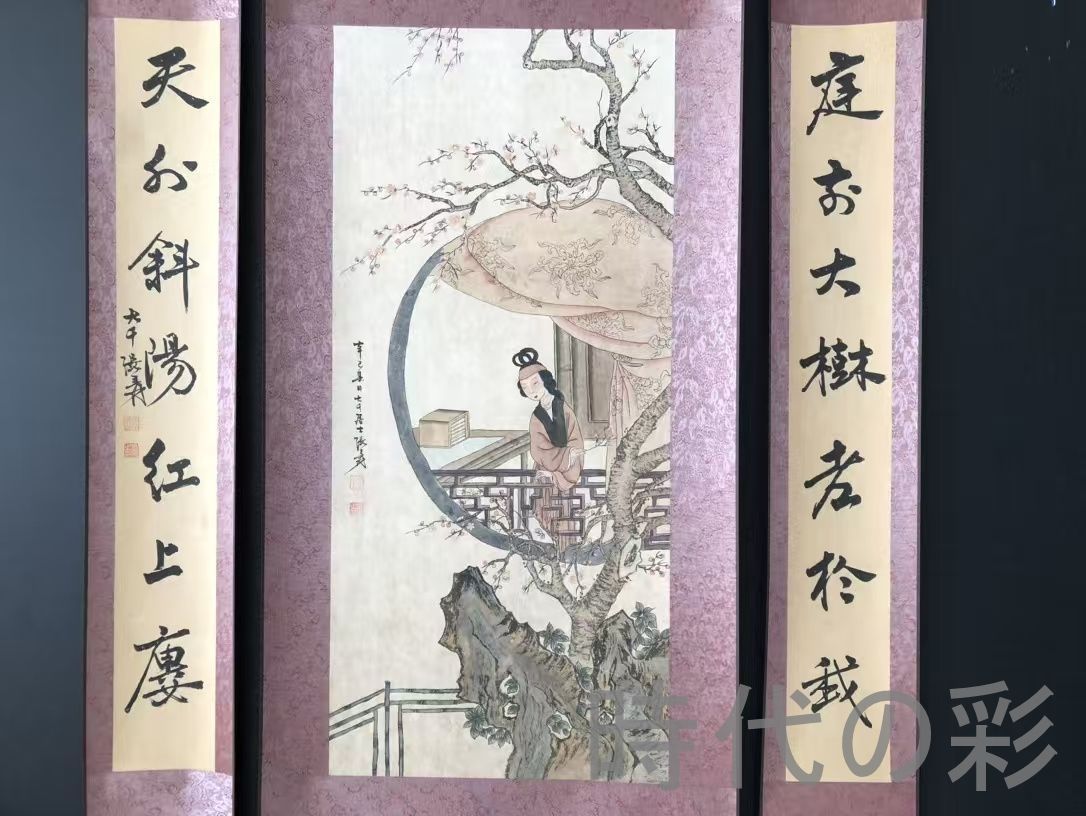 庭前大樹老於我
辛巳春日大千居士張爰
天外斜陽紅上廔
大千張爰
時代の彩